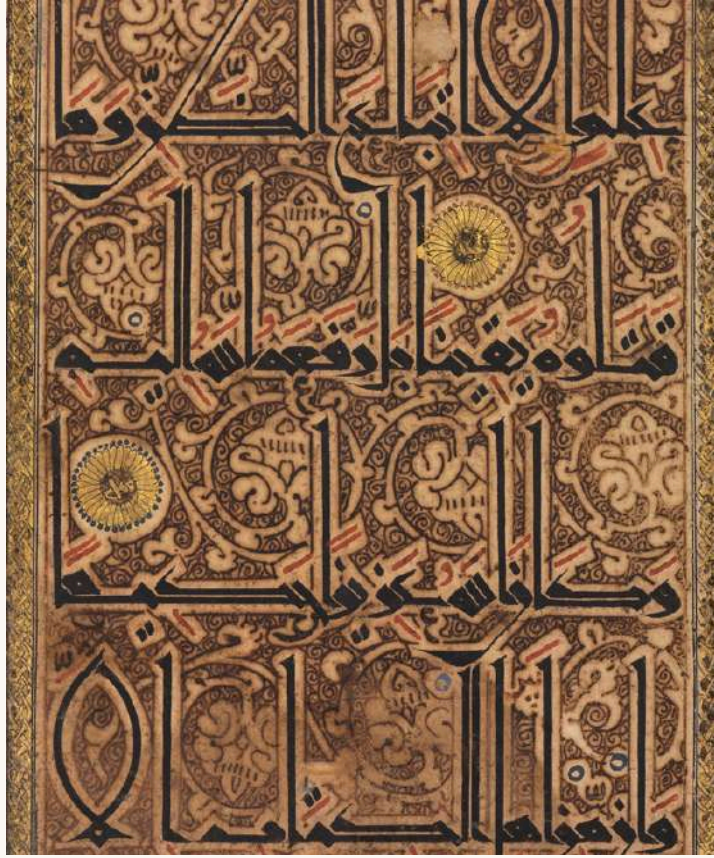 عِلْمٍ إِلَّا اتِّبَاعَ الظَّنِّ وَمَا
قَتَلُوهُ يَقِينًا بَل رَّفَعَهُ اللَّهُ إِلَيْهِ
وَكَانَ اللَّهُ عَزِيزًا حَكِيمًا
وَإِن مِّنْ أَهْلِ الْكِتَابِ إِلَّا